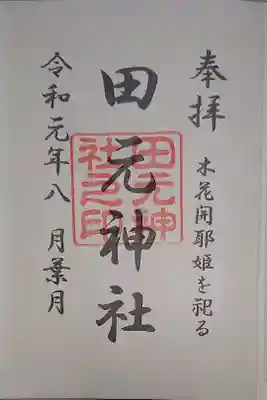 奉拝
木花開耶姫を祀る
田元神社
田元神社之印
令和元年八月葉月